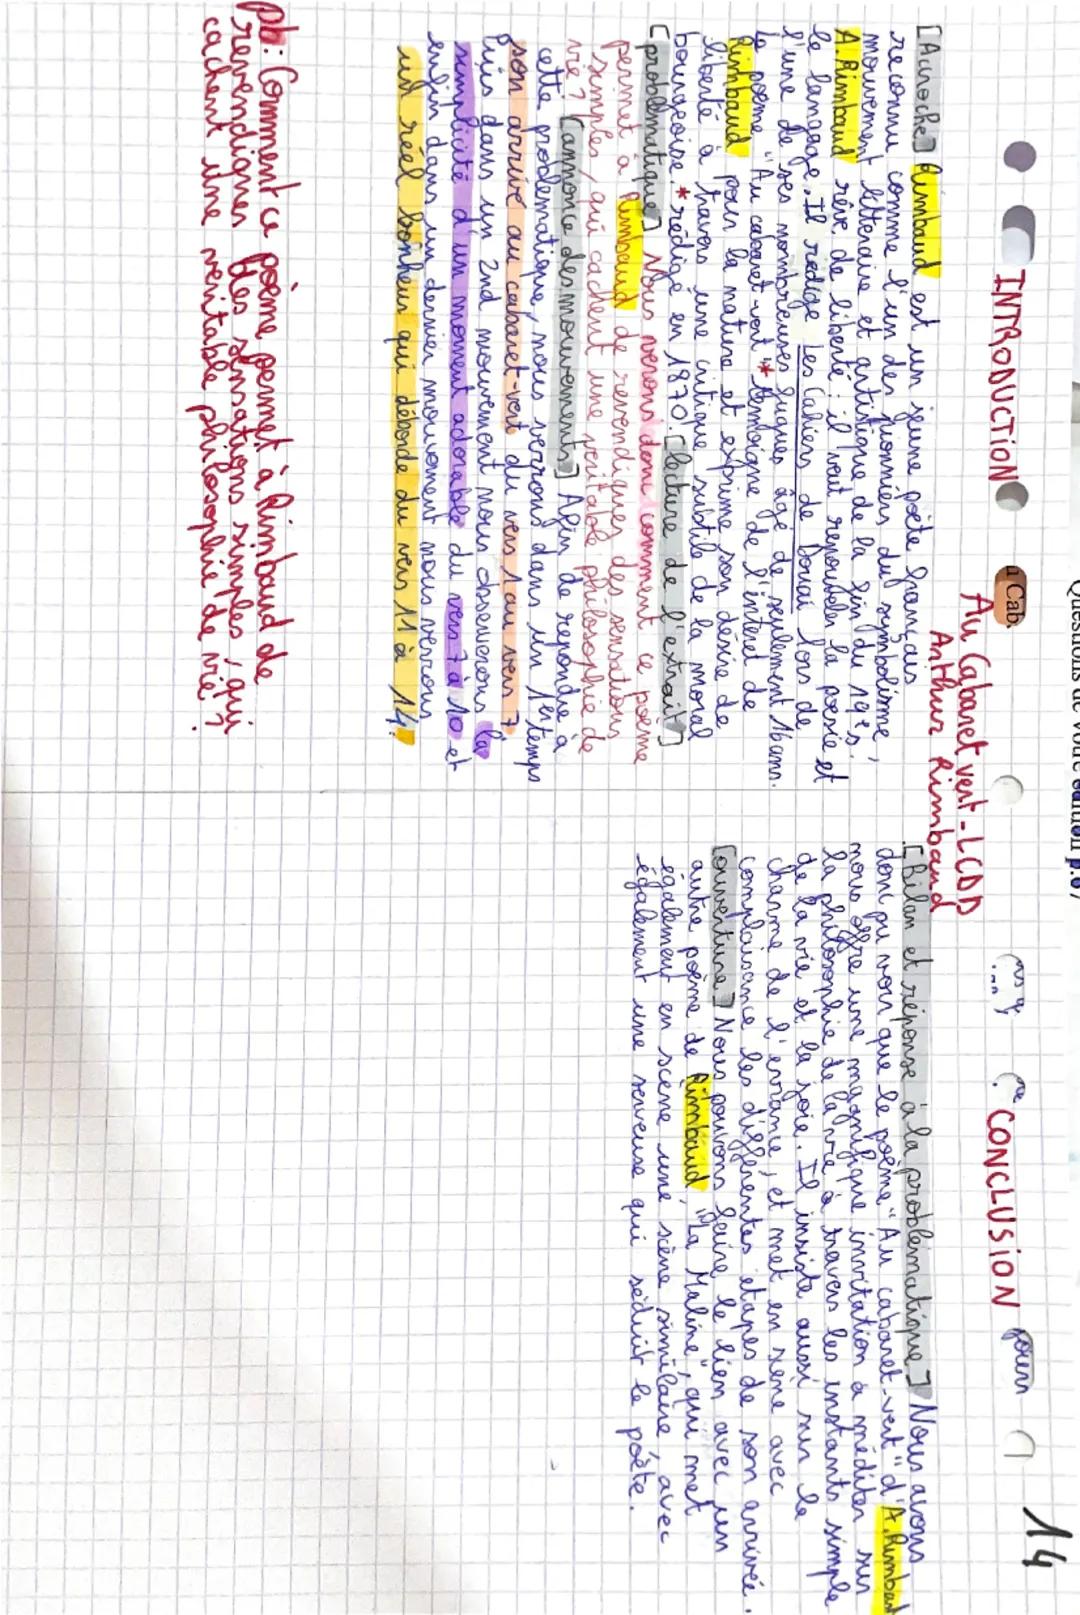 Questions de votre édition p.67
14
INTRODUCTION
Cab.
Au Cabaret vert - LCDD
Arthur Rimbaud
[Accroche] Rimbaud est un jeune poète français
reconnu comme l'un des pionniers du symbolisme,
mouvement litteraire et artistique de la fin du 19e s.
A.Rimbaud rêve de liberté : il veut repoubler la poésie et
le langage. Il rédige Les Cahiers de Douai lors de
l'une de ses nombreuses fugues âgé de seulement 16 ans.
Le poème "Au cabaret-vert"* témoigne de l'interet de
Rimbaud pour la nature et exprime son désire de
liberté à travers une critique subtile de la moral
bourgeoise *rédigé en 1870. [lecture de l'extrait]
[problématique] Nous verons donc comment ce poème
permet à Rimbaud de revendiquer des sensations
simples, qui cachent une veritable philosophie de
vie ? [annonce des mouvements] Afin de repondre à
cette problematique, nous verrons dans un 1er temps
son arrivé au cabaret-vert du vers 1 au vers 7
puis dans un 2nd mouvement nous observerons la
simplicité d'un moment adorable du vers 7 à 10 et
enfin dans un dernier mouvement nous verrons
un réel bonheur qui déborde du vers 11 à 14.
pb : Comment ce poème permet à Rimbaud de
revendiquer des sensations simples, qui
cachent une veritable philosophie de vie ?
CONCLUSION
pour
[Bilan et réponse à la problématique] Nous avons
donc pu voir que le poème "Au cabaret-vert" d'A.Rimbaud
nous offre une magnifique invitation à méditer sur
la philosophie de la vie à travers les instants simple
de la vie et la joie. Il insiste aussi sur le
charme de l'errance, et met en scène avec
complaisance les différentes étapes de son arrivée.
[ouverture] Nous pouvons faire le lien avec un
autre poème de Rimbaud, "La Maline", qui met
également en scène une scène similaire, avec
également une serveuse qui séduit le poète.